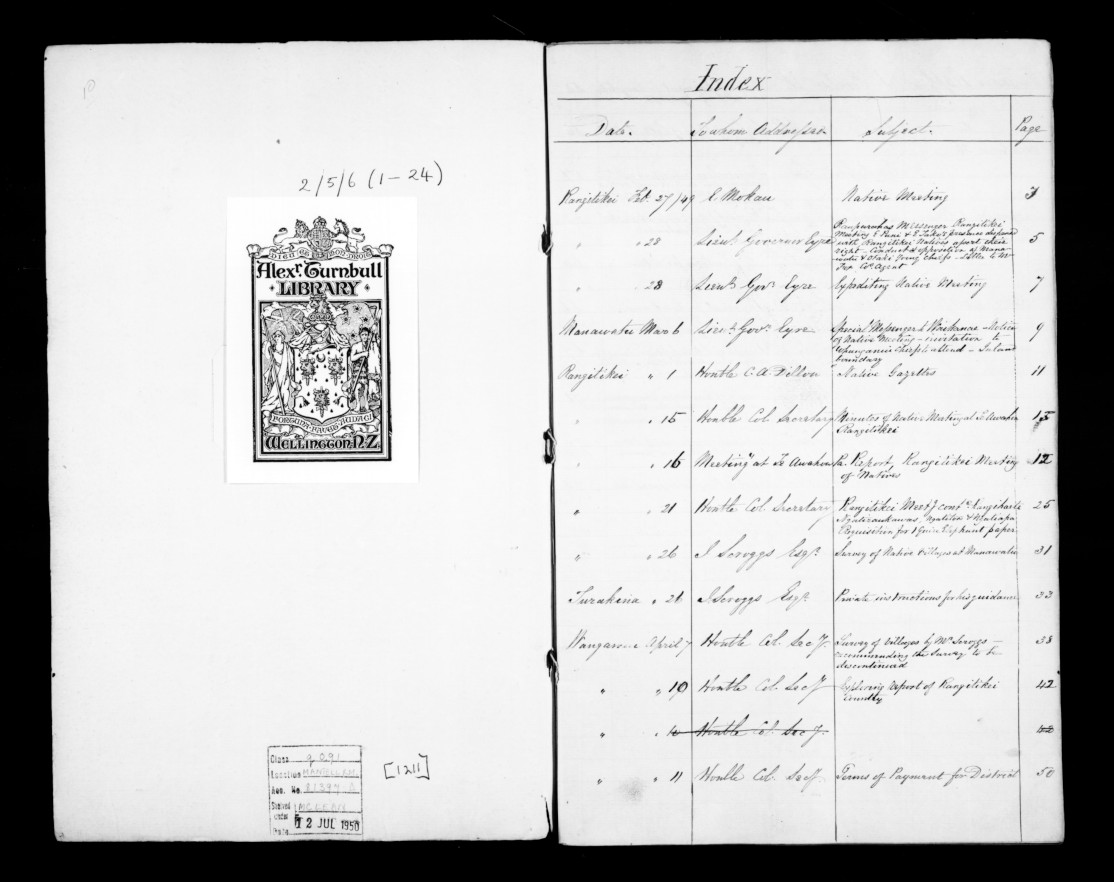 2/5/6 (1-24)
DIEU ET MON DROIT
Alexr. Turnbull
· LIBRARY ·
FORTUNA FAVET AUDACI
WELLINGTON. N.Z.
Class q 091
Location
Acc. No.
Shelved under McLEAN
Date 12 JUL 1950
[1211]
Index
Date. To whom Addressed. Subject. Page
Rangitikei Feb. 27/49 E. Mokau Native Meeting 3
" " 28 Lieut. Governor Eyre
Rauparahas Messenger Rangitikei
Meeting E Puni & E Tako's presence
with Rangitikei Natives apart their
right - Conduct & opposition of Mana-
watu & Otaki young chiefs - Letter to Mr
Fox Co. Agent
5
" 28 Lieut. Govr. Eyre Expediting Native Meeting 7
Manawatu Mar 6 Lieut. Govr. Eyre
Special Messenger to Waikanae - Notice
of Native Meeting - invitation to
Wanganui Chiefs to attend - Inland
boundary
9
Rangitikei " 1 Honble C. A. Dillon Native Gazettes 11
" " 15 Honble Col. Secretary Minutes of Native Meeting at Te Awahou
Rangitikei
" " 16 Meeting at Te Awahou Re. Report, Rangitikei Meeting 12
of Natives
" " 21 Honble Col. Secretary Rangitikei Meetg.
Ngatiraukawas, &
Requisition for 1 Quire of paper
25
" " 26 I Scroggs Esqr. Survey of Native Villages at Manawatu 31
Turakina " 26 I. Scroggs Esqr. Private instructions for his guidance 33
Wanganui April 7 Honble Col. Secy. Survey of Villages by Mr. Scroggs - 38
recommending the Survey to be
discontinued
" " 10 Honble Col. Secy Exploring report of Rangitikei 42
Country
" " Honble Col. Secy. 42
" " 11 Honble Col. Secy. Terms of Payment for District 50